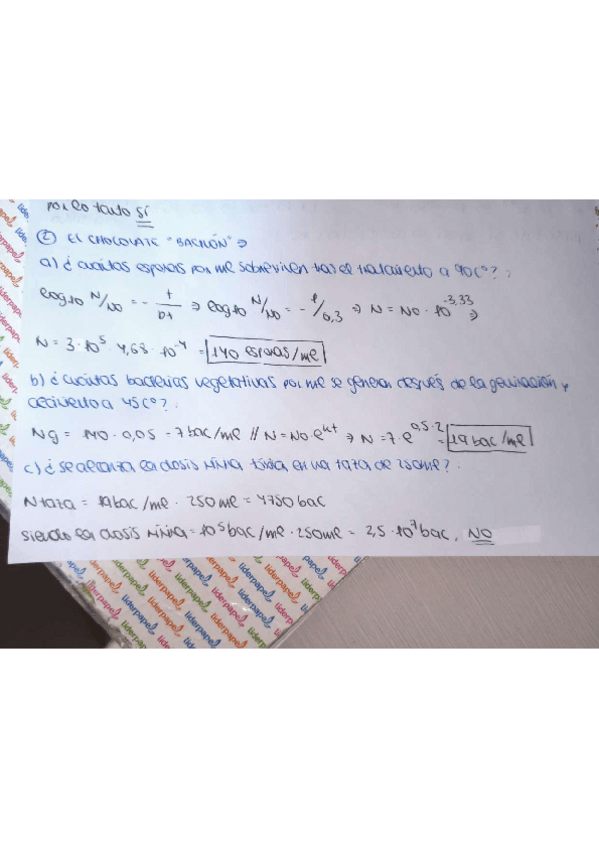 por lo tanto sí
② EL CHOCOLATE "BACILÓN" ⇒
a) ¿cuántas esporas por ml sobreviven tras el tratamiento a 90Cº? :
log10 N/N0 = - t/Dt ⇒ log10 N/N0 = - 1/0,3 ⇒ N = N0 · 10^-3,33 ⇒
N = 3 · 10^5 · 4,68 · 10^-4 = 140 esporas/ml
b) ¿cuántas bacterias vegetativas por ml se generan después de la germinación y
crecimiento a 45Cº? :
Ng = 140 · 0,05 = 7 bac/ml // N = N0 · e^ut ⇒ N = 7 · e^0,5·2 = 19 bac/ml
c) ¿se alcanza la dosis mínima tóxica en una taza de 250ml? :
Ntaza = 19 bac/ml · 250 ml = 4750 bac
siendo la dosis mínima = 10^5 bac/ml · 250ml = 2,5 · 10^7 bac, NO
liderpapel